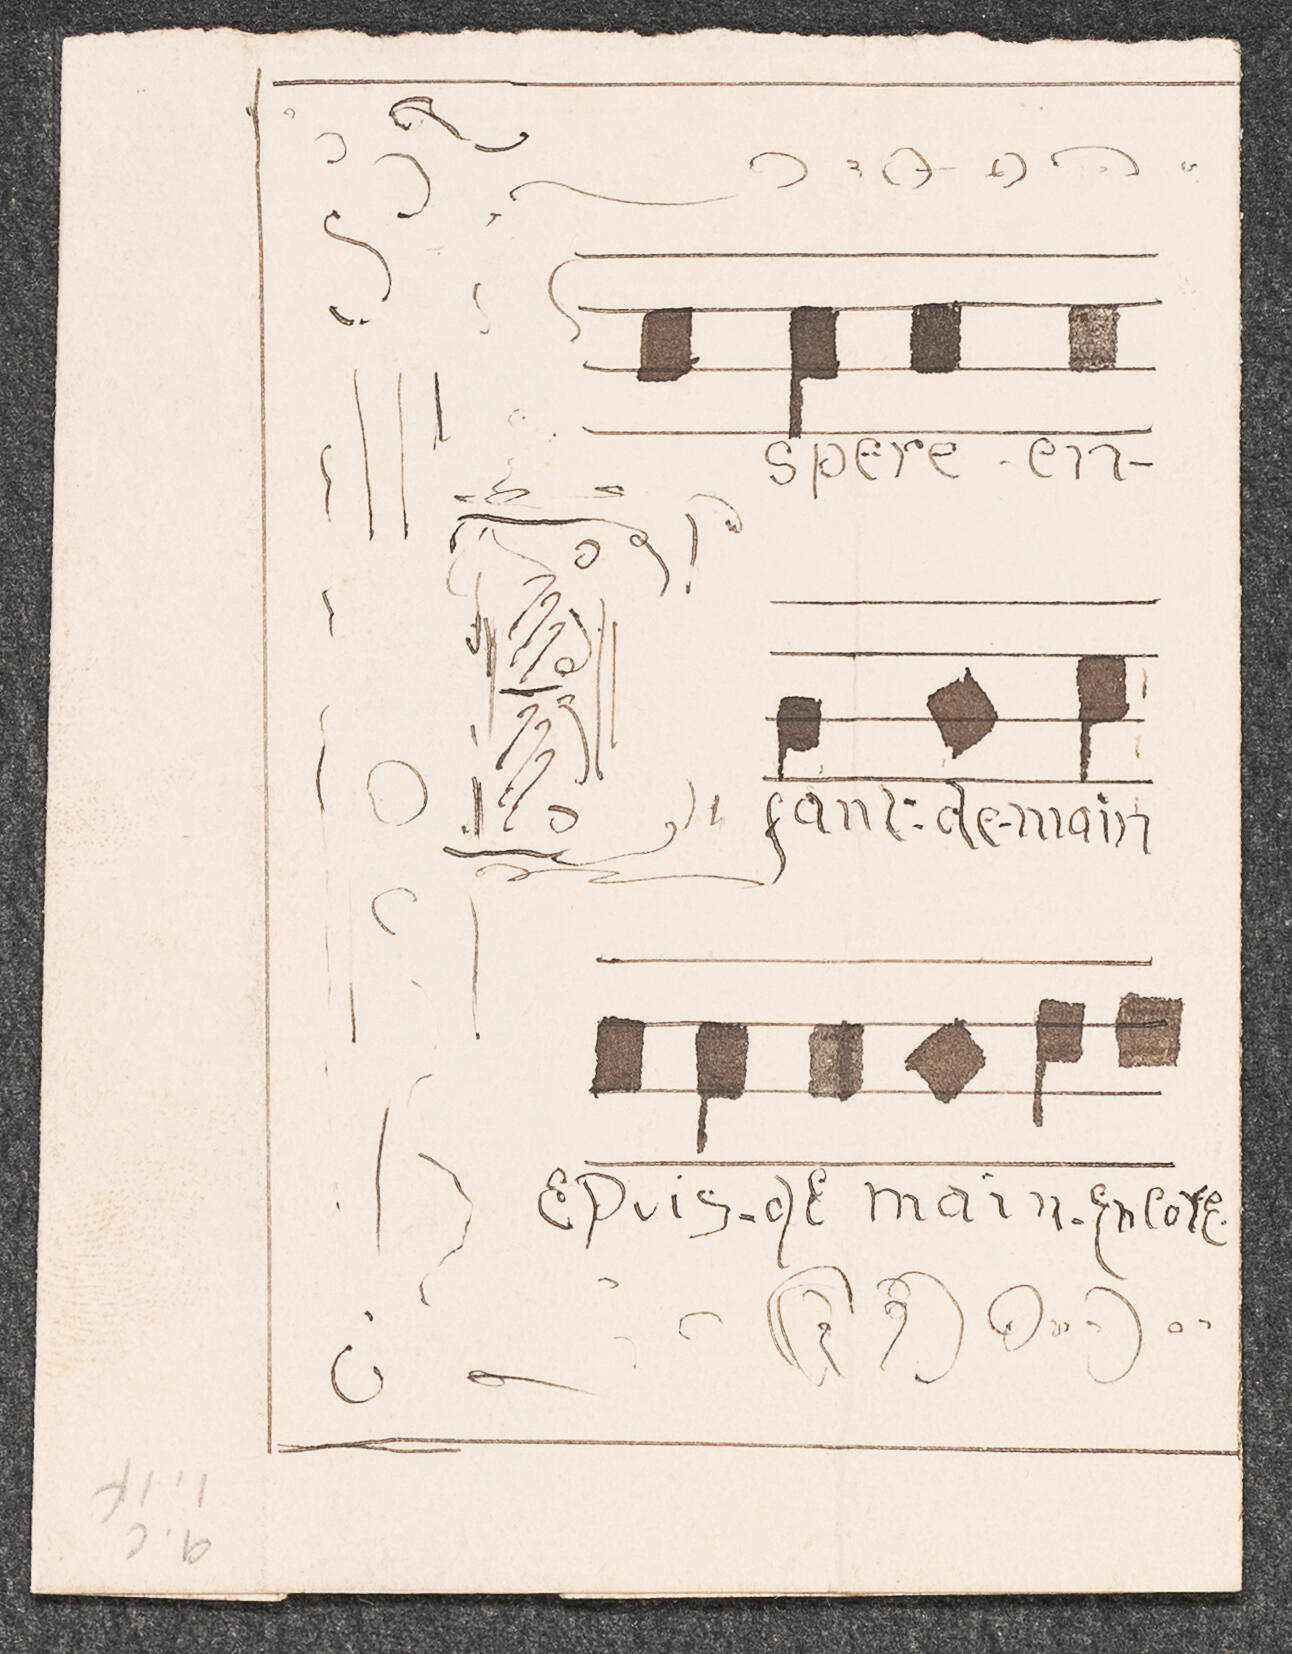 spere - en-
fant:-de-main
epuis-de main-encore